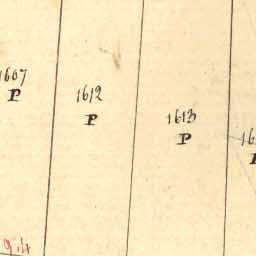 1607
P
1612
P
1613
P
P
9.4